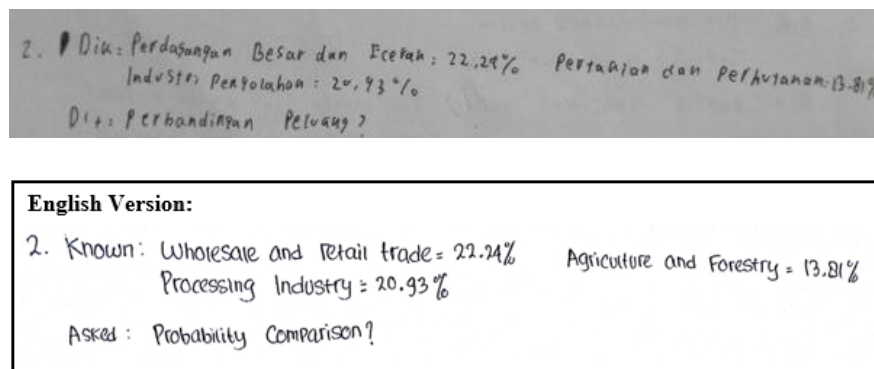 2. Dik: Perdagangan Besar dan Eceran: 22,24% Pertanian dan Perhutanan: 13.81%
Industri Pengolahan: 20,93%
Dit: Perbandingan Peluang?
English Version:
2. Known: Wholesale and retail trade = 22.24% Agriculture and Forestry = 13.81%
Processing Industry = 20.93%
Asked: Probability Comparison?